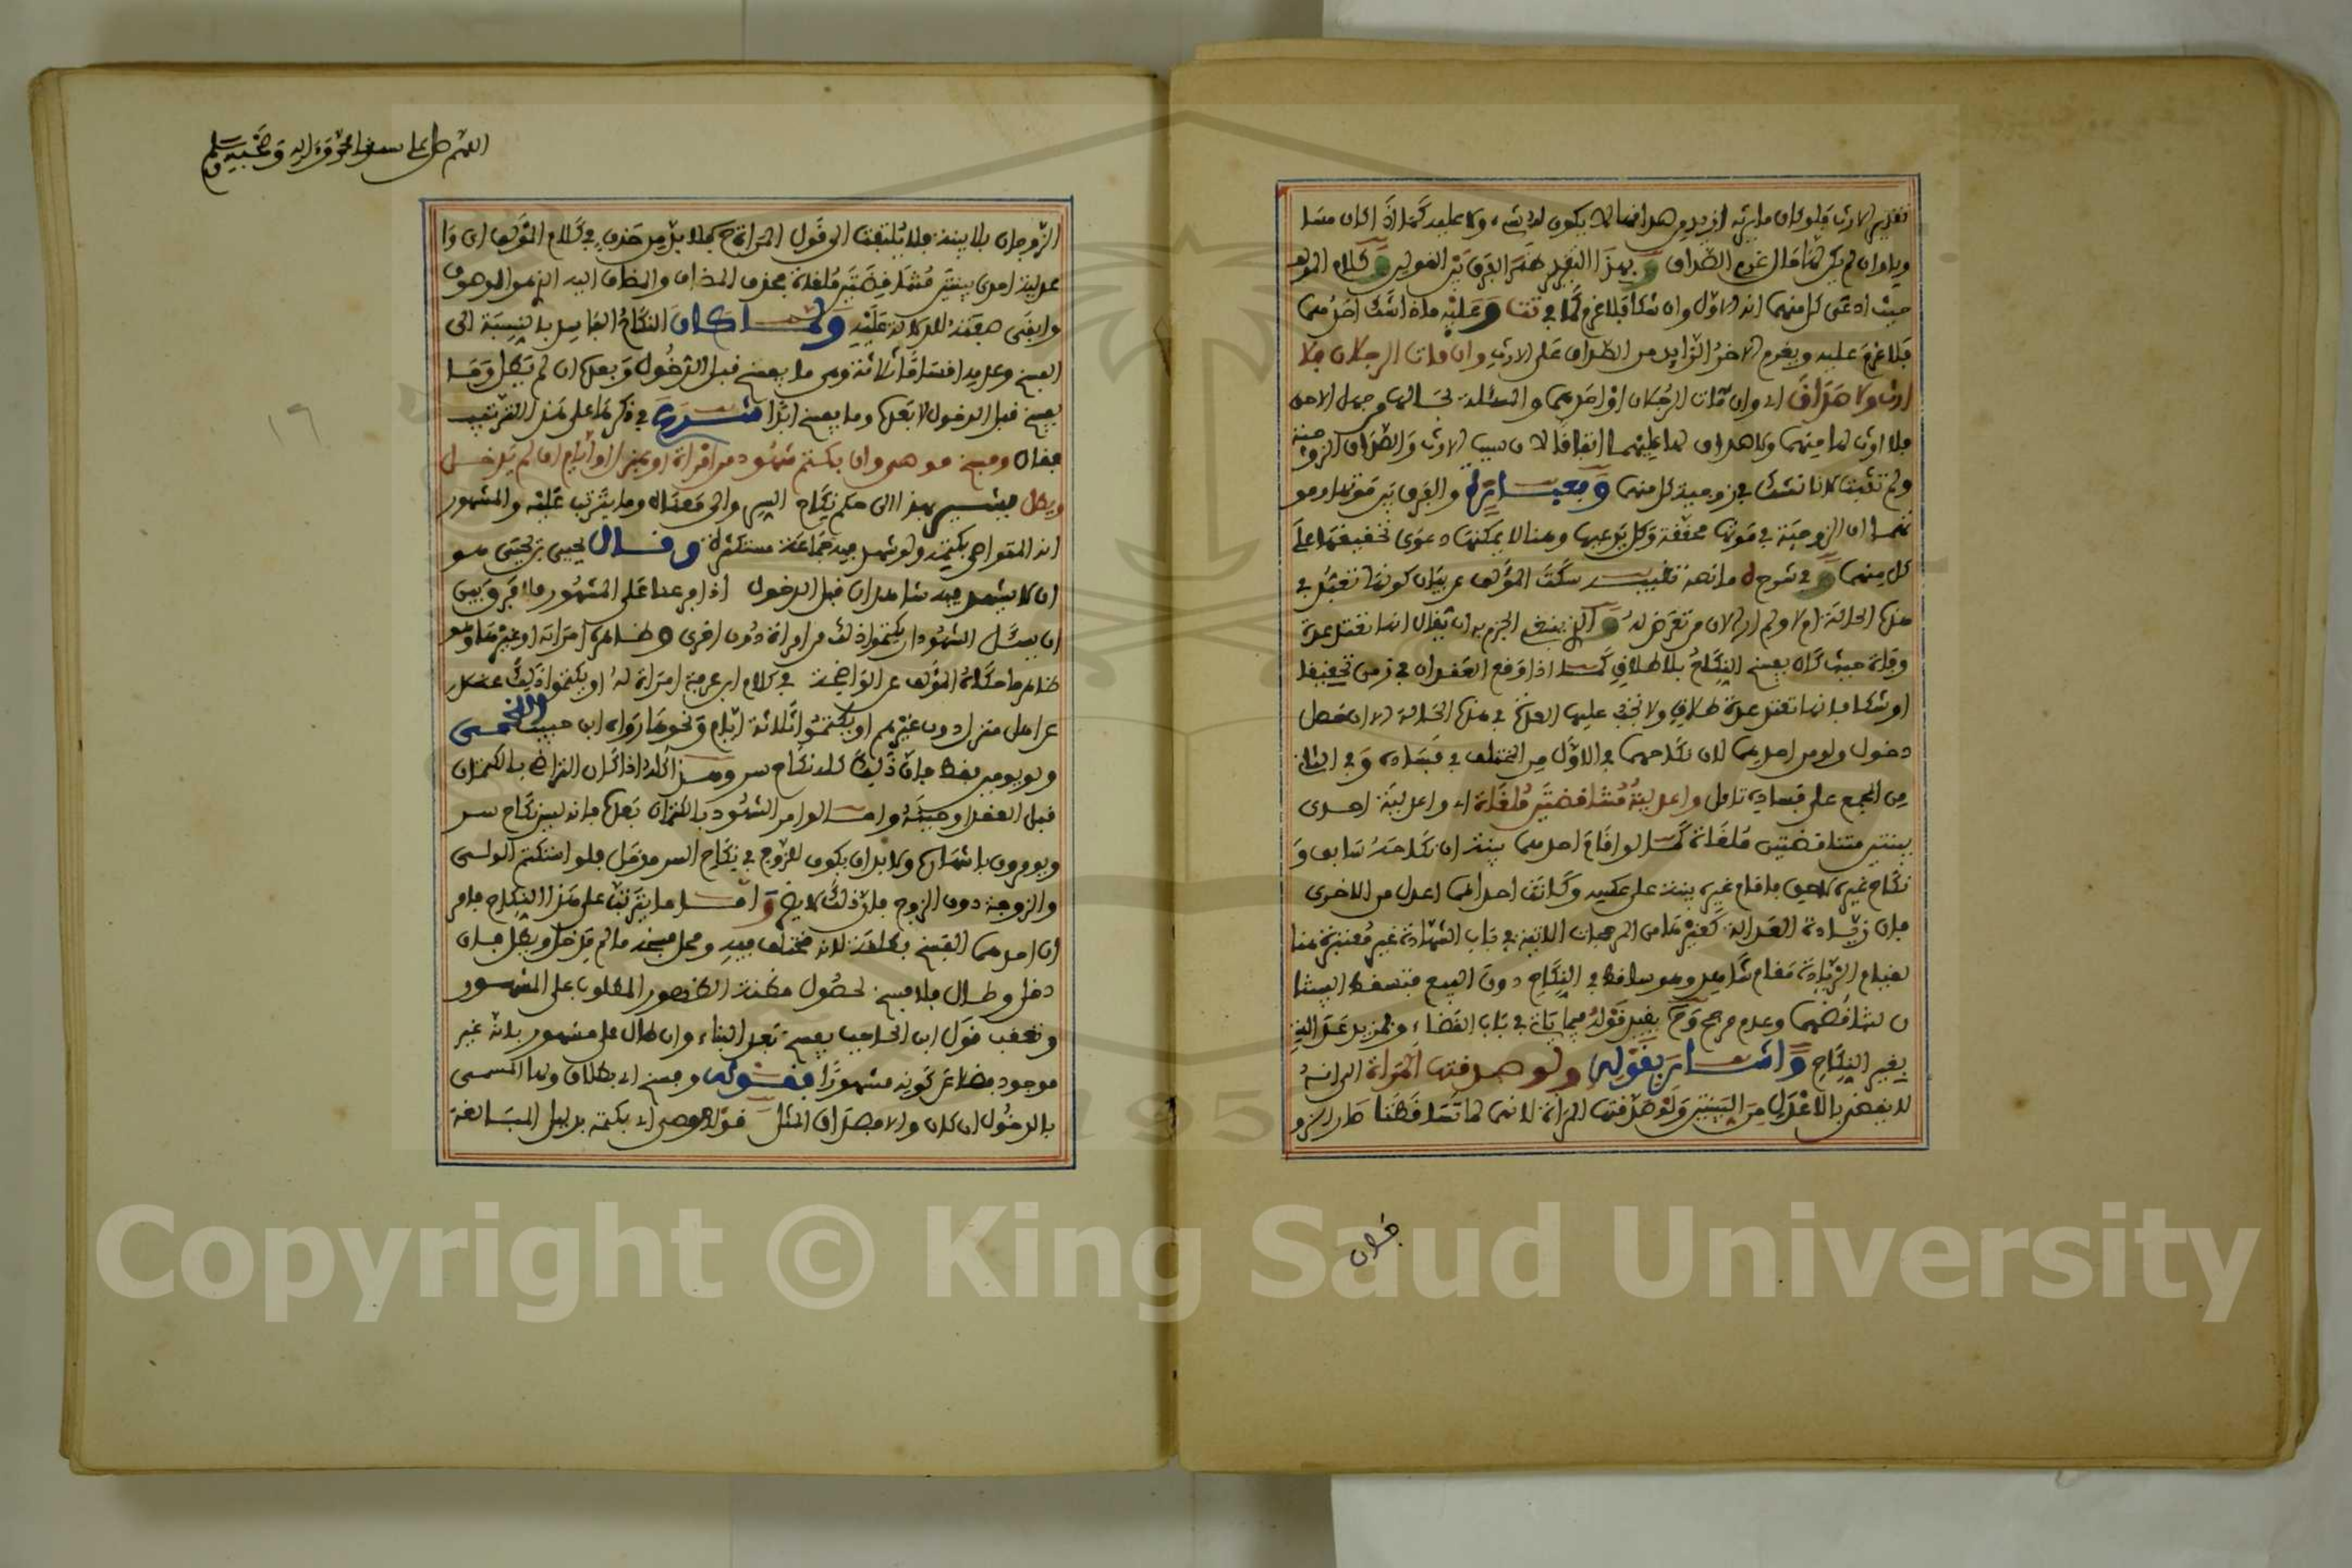 تقدير الارث فلو كان ما يرثه ازيد من صداقها لا يكون له شيء ولا عليه كما اذا كان مساويا
وان لم يكن لها مال غرم الصداق وبهذا التقدير ظهر الفرق بين القولين وكلام المؤلف
حيث ادعى كل منهما انه الاول وان شكا فلا غرم كما في تت وعليه ماذا شك احدهما
فلا غرم عليه ويغرم الاخر الزايد من الصداق على الارث وان مات الرجلان فلا
ارث ولا صداق اي وان مات الرجلان او احدهما والمسئلة بحالها من جهل الاحق
فلا ارث لها منهما ولا صداق لها عليهما اتفاقا لان سبب الارث والصداق الزوجية
ولم تثبت لانا نشك في زوجية كل منهما والفرق بين موتها وموتهما
ان الزوجية في موتها محققة وكل يدعيها وهنا لا يمكنها دعوى تحقيقها على
كل منهما وفي شرح ه ما نصه تنبيه سكت المؤلف عن بيان كونها تعتد في
هذه الحالة ام لا ولم ار الان من تعرض له والذي ينبغي الجزم به ان يقال انها تعتد عدة
وفاة حيث كان يفسخ النكاح بلا طلاق كما اذا وقع العقدان في زمن تحقيقا
او شكا فانها تعتد عدة طلاق ولا يخفى عليها العدة في هذه الحالة الا ان حصل
دخول ولو من احدهما لان نكاحهما في الاول من المختلف في فساده وفي الثاني
من المجمع على فساده تامل واعدلية متناقضتين ملغاة اي واعدلية احدى
بينتين متناقضتين ملغاة كما لو اقام احدهما بينة ان نكاحه سابق و
نكاح غيره لاحق فاقام غيره بينة على عكسه وكانت احداهما اعدل من الاخرى
فان زيادة العدالة كغيرها من المرجحات الاتية في باب الشهادة غير معتبرة هنا
لقيام الزيادة مقام شاهد وهو ساقط في النكاح دون البيع فتسقط البينتا
ن لتناقضهما وعدم مرجح وح يقيد قوله فيما ياتي في باب القضاء وبمزيد عدالة
بغير النكاح واشار بقوله ولو صدقتها المراة الى انه
لا يقضى بالاعدل من البينتين ولو صدقتها المراة لانهما لما تساقطتا صار الزو
فسان
اللهم صل على سيدنا محمد وءاله وصحبه وسلم
الزوجان بلا بينة فلا يلتفت الى قول المراة ح فلا بد من حذف في كلام المؤلف اي وا
عدلية احدى بينتين متناقضتين ملغاة بحذف المضاف والمضاف اليه الذي هو الموصوف
وابقى صفته للدلالة عليه ولما كان النكاح الفاسد بالنسبة الى
الفسخ وعدمه اقساما ثلاثة وهي ما يفسخ قبل الدخول وبعده ان لم يطل وما
يفسخ قبل الدخول لا بعده وما يفسخ ابدا شرع في ذكرها على هذا الترتيب
فقال وفسخ موصى وان بكتم شهود من امراة او بمنزل او ايام ان لم يدخل
ويطل يشير بهذا الى حكم نكاح السر والى معناه وما يترتب عليه والمشهور
انه المتواصى بكتمه ولو شهد فيه جماعة مستكثرة وقال يحيى بن يحيى هو
ان لا يشهد فيه شاهدان قبل الدخول اذا فرعنا على المشهور فلا فرق بين
ان يسئل الشهود ان يكتموا ذلك من امراة دون اخرى وظاهره امراته او غيرها وهو
ظاهر ما حكاه المؤلف عن الواضحة في كلام ابن عرفة امراة له او يكتموا ذلك
عن اهل منزل دون غيرهم او يكتموا ثلاثة ايام ونحوها رواه ابن حبيب اللخمي
ولو يومين فقط فان ذلك كله نكاح سر وهذا كله اذا كان التواصي بالكتمان
قبل العقد او حينه واما لو امر الشهود بالكتمان بعده فانه ليس نكاح سر
ويومرون باشهاره ولا بد ان يكون للزوج في نكاح السر مدخل فلو استكتم الولي
والزوجة دون الزوج فان ذلك لا يضر واما ما يترتب على هذا النكاح فامر
ان احدهما الفسخ بطلقة لانه مختلف فيه ومحل فسخه ما لم يدخل ويطل فان
دخل وطال فلا فسخ لحصول مظنة الظهور المطلوب على المشهور
وتعقب قول ابن الحاجب يفسخ بعد البناء وان طال على مشهور بانه غير
موجود فضلا عن كونه مشهورا فقوله وفسخ اي بطلاق ولها المسمى
بالدخول ان كان والا فصداق المثل قوله موصى اي بكتمه بدليل المبالغة